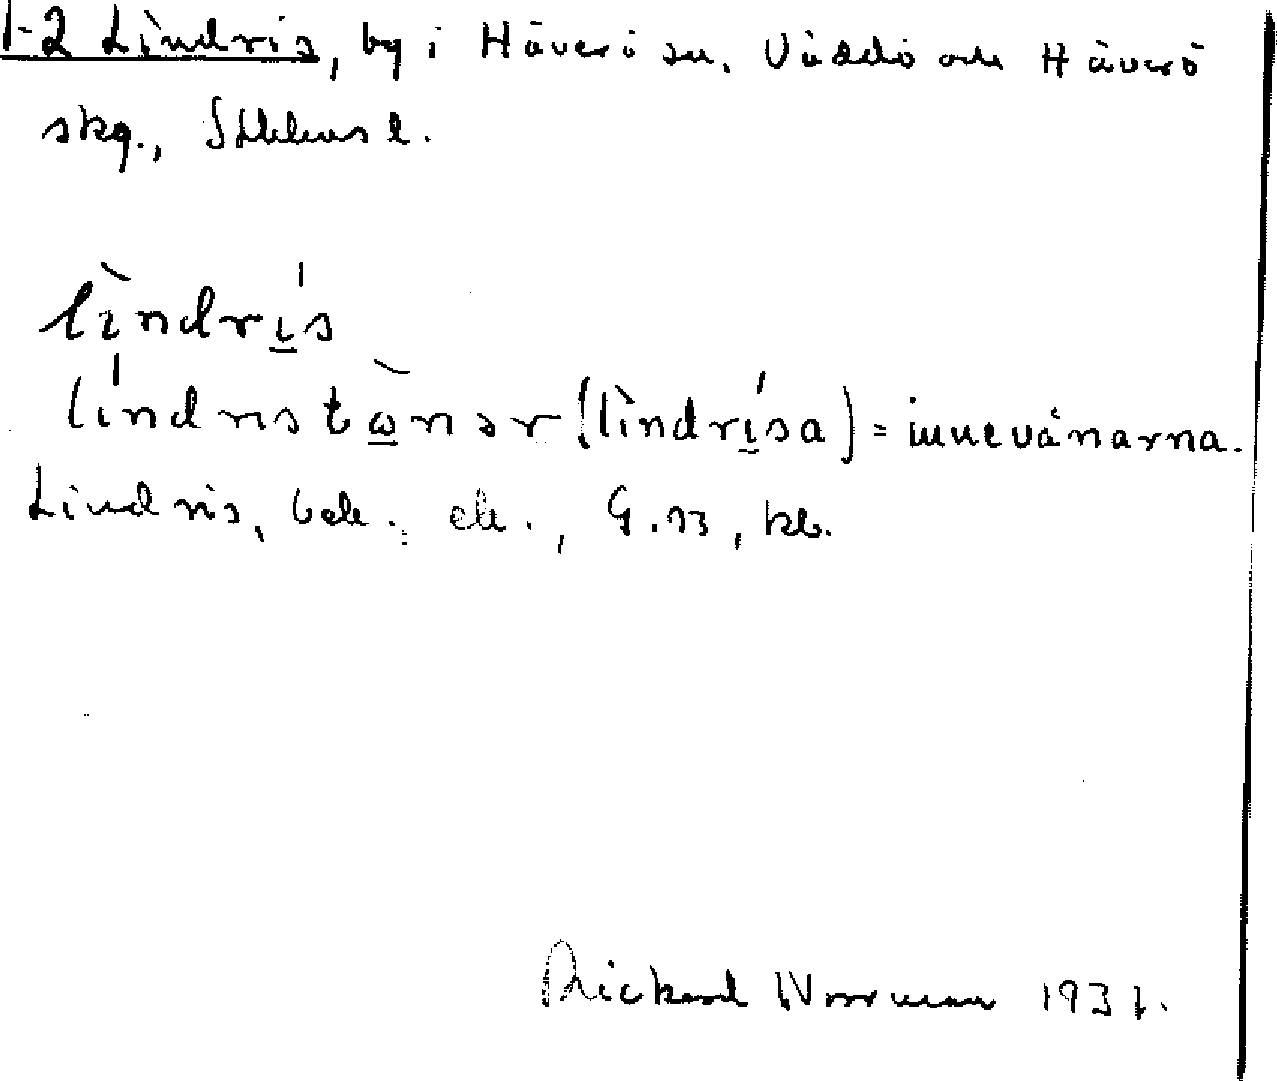 1-2 Lindris, by i Häverö sn. Väddö och Häverö
skg., Sthlms l.
lìndrís
líndristὼnər (lìndrísa) = innevånarna.
Lindris, bek., G. 13, kb.
Rickard Norrman 1931.